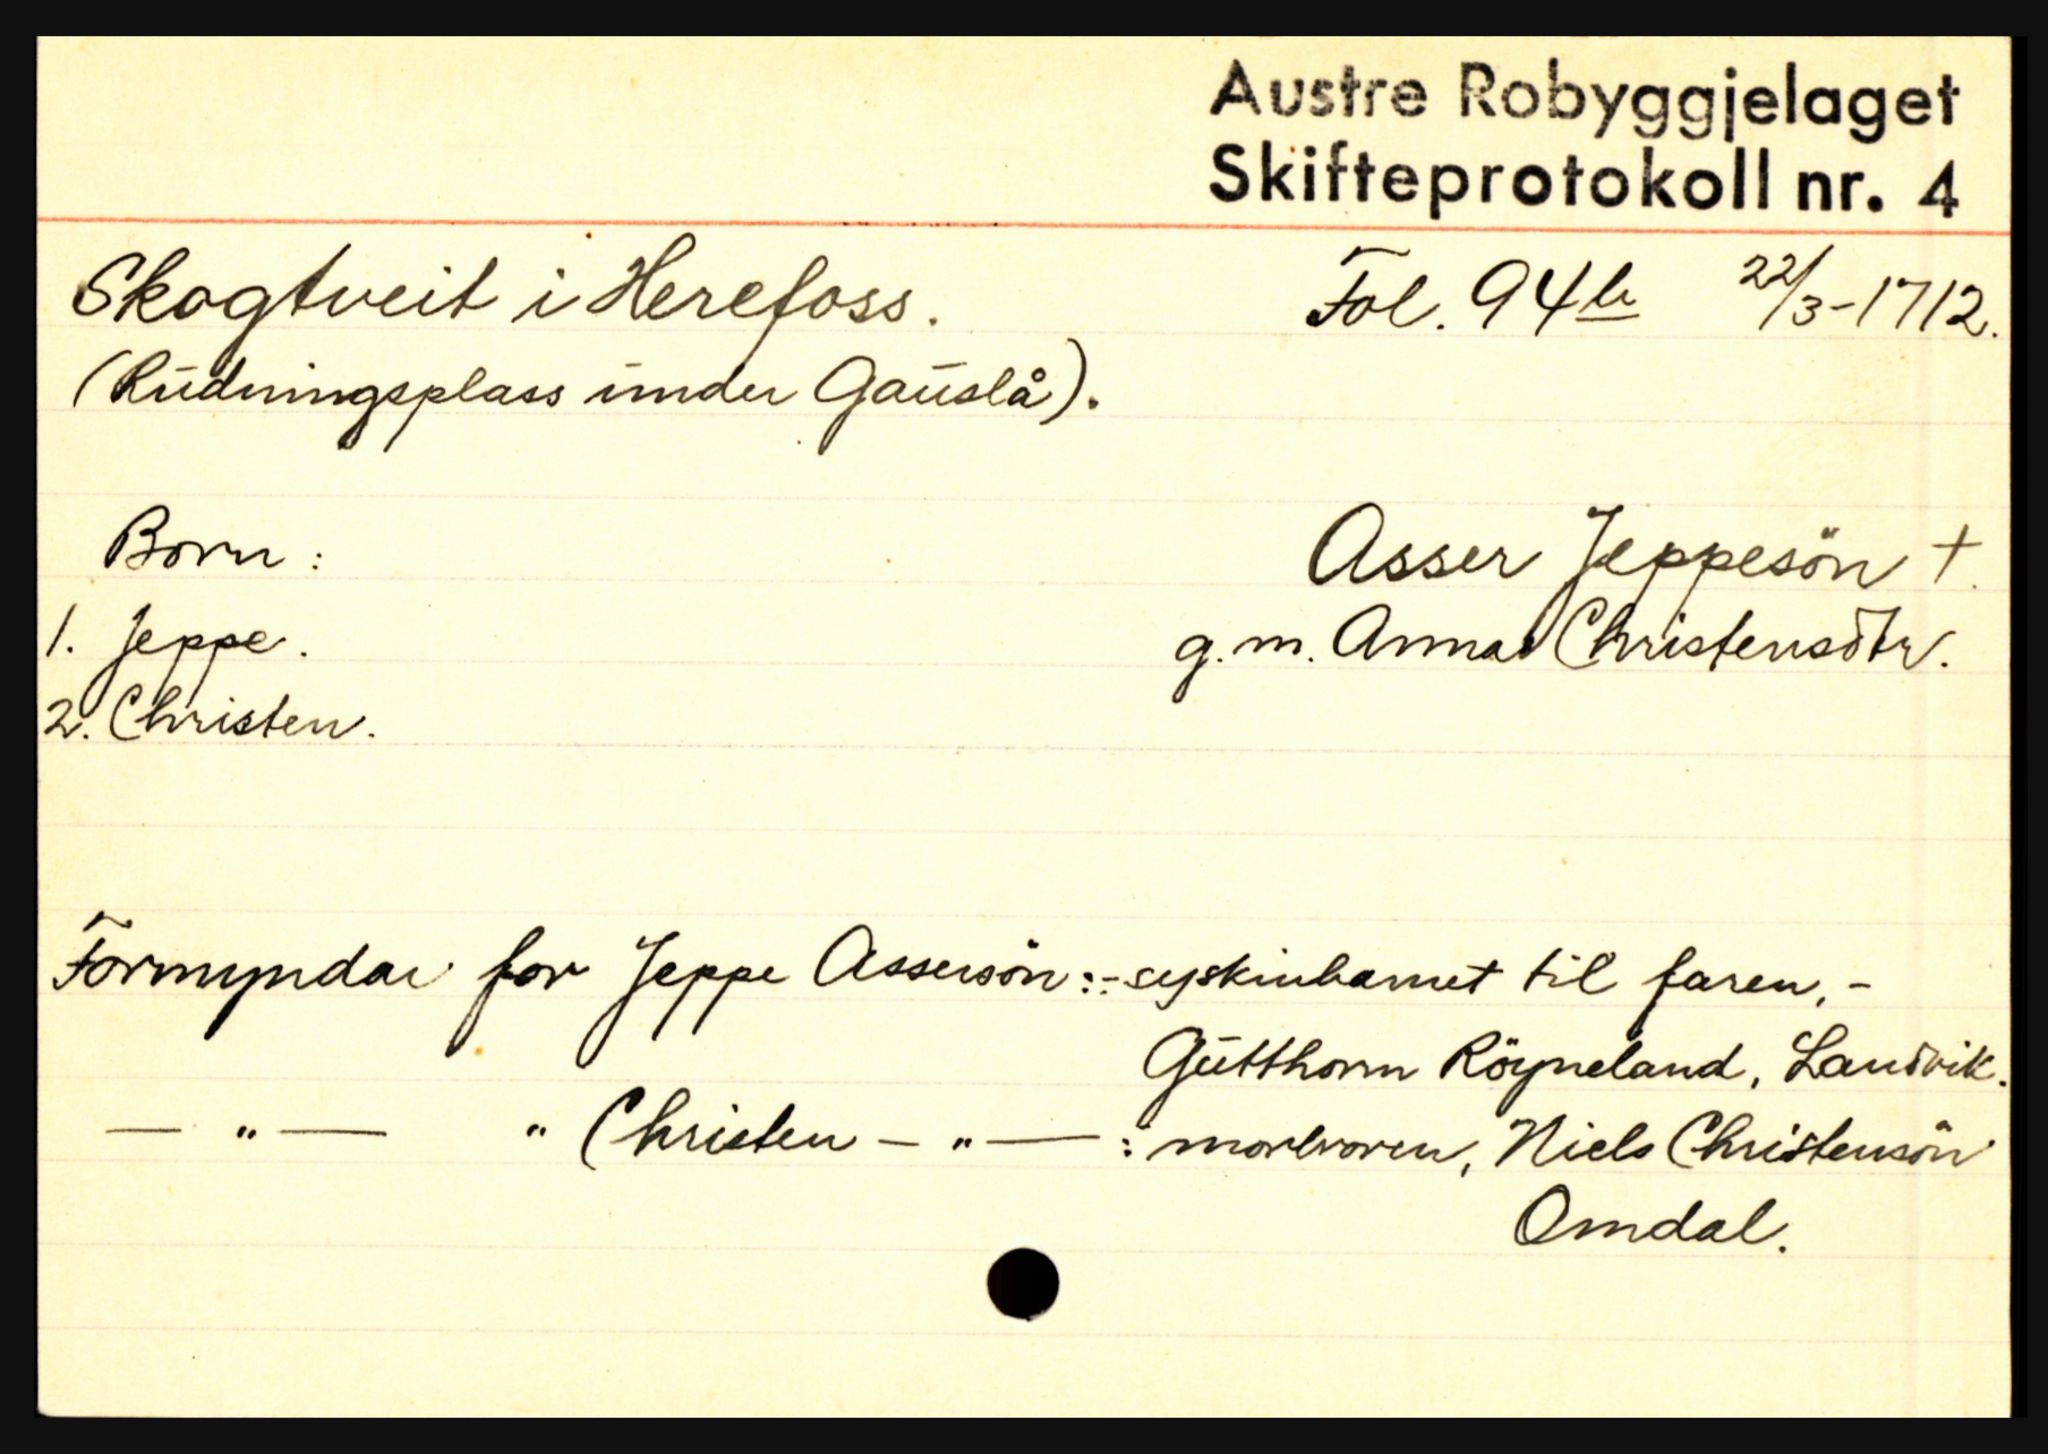 Austre Robyggjelaget
Skifteprotokoll nr. 4
Skogtveit i Herefoss. Fol. 94b 22/3-1712.
(Rudningsplass under Gauslå).
Born: Asser Jeppesön †.
1. Jeppe. g.m. Anna Christensdtr.
2. Christen.
Formyndar for Jeppe Assersön:- syskinbarnet til faren,-
Gutthorm Röyneland, Landvik.
— " — " Christen — " — : morbroren, Niels Christensön
Omdal.